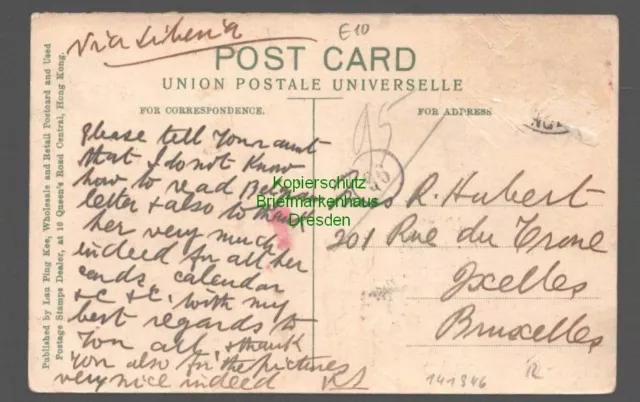 Via Siberia
E10
POST CARD
UNION POSTALE UNIVERSELLE
FOR CORRESPONDENCE.
FOR ADDRESS
Published by Lau Ping Kee, Wholesale and Retail Postcard and Used
Postage Stamps Dealer, at 16 Queen's Road Central, Hong Kong.
Please tell Your aunt
that I do not Know
how to read
letter & also to thank
her very much
indeed for all her
cards, calendar
&c &c. With my
best regards to
You all & thank
You also for the pictures
very nice indeed
95
R. Hubert
201 Rue du Trone
Ixelles
Bruxelles
141946
Kopierschutz
Briefmarkenhaus
Dresden